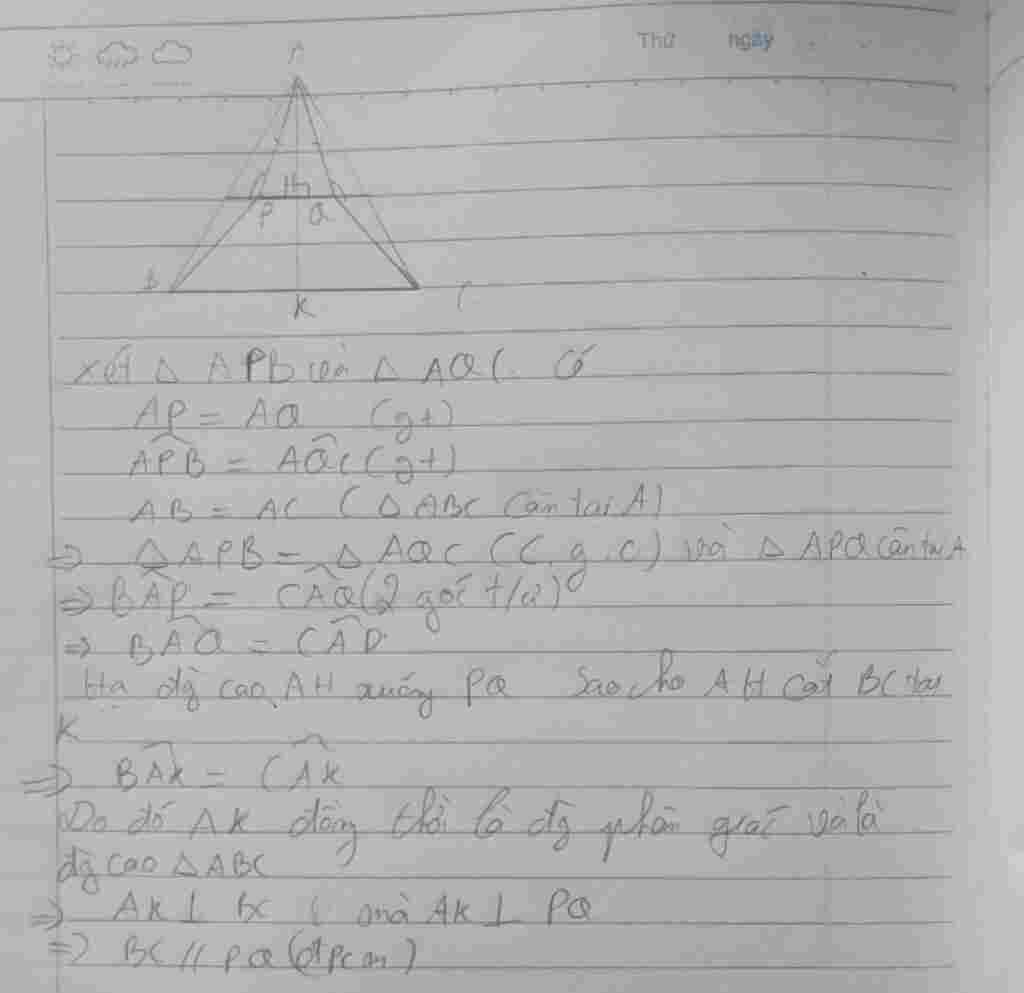 Thứ ngày
A
P Q
B
K C
xét △ APB và △ AQC Có
AP = AQ (gt)
APB = AQC (gt)
AB = AC (△ ABC Cân tại A)
=> △ APB = △ AQC (C.g.c) và △ APQ cân tại A
=> BAP = CAQ (2 góc t/ứ)
=> BAQ = CAP
Hạ đg cao AH xuống PQ Sao cho AH cắt BC tại
K
=> BAK = CAK
Do đó AK đồng thời là đg phân giác và là
đg cao △ ABC
=> AK ⊥ BC mà AK ⊥ PQ
=> BC // PQ (đpcm)